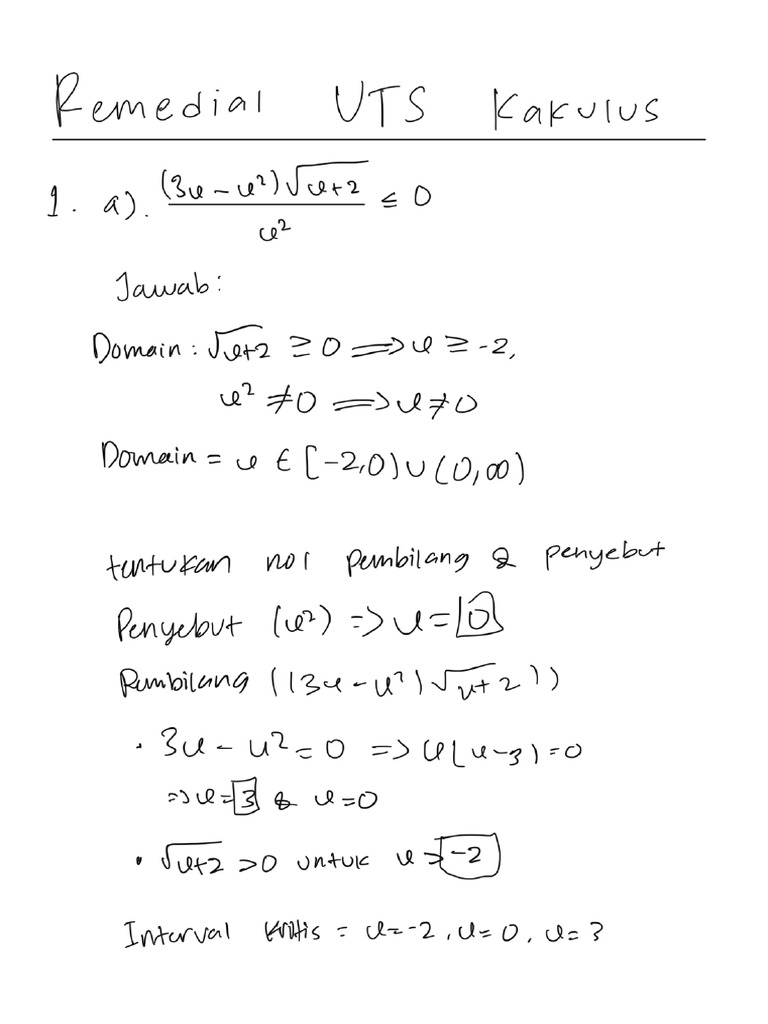 Remedial UTS Kakulus
1. a). ((3u-u²)√(u+2))/u² ≤ 0
Jawab:
Domain: √(u+2) ≥ 0 ⟹ u ≥ -2,
u² ≠ 0 ⟹ u ≠ 0
Domain = u ∈ [-2,0) ∪ (0,∞)
tentukan nol pembilang & penyebut
Penyebut (u²) => u = 0
Pembilang ((3u-u²)√(u+2))
• 3u - u² = 0 => u(u-3) = 0
=> u = 3 & u = 0
• √(u+2) > 0 untuk u > -2
Interval kritis = u = -2, u = 0, u = 3